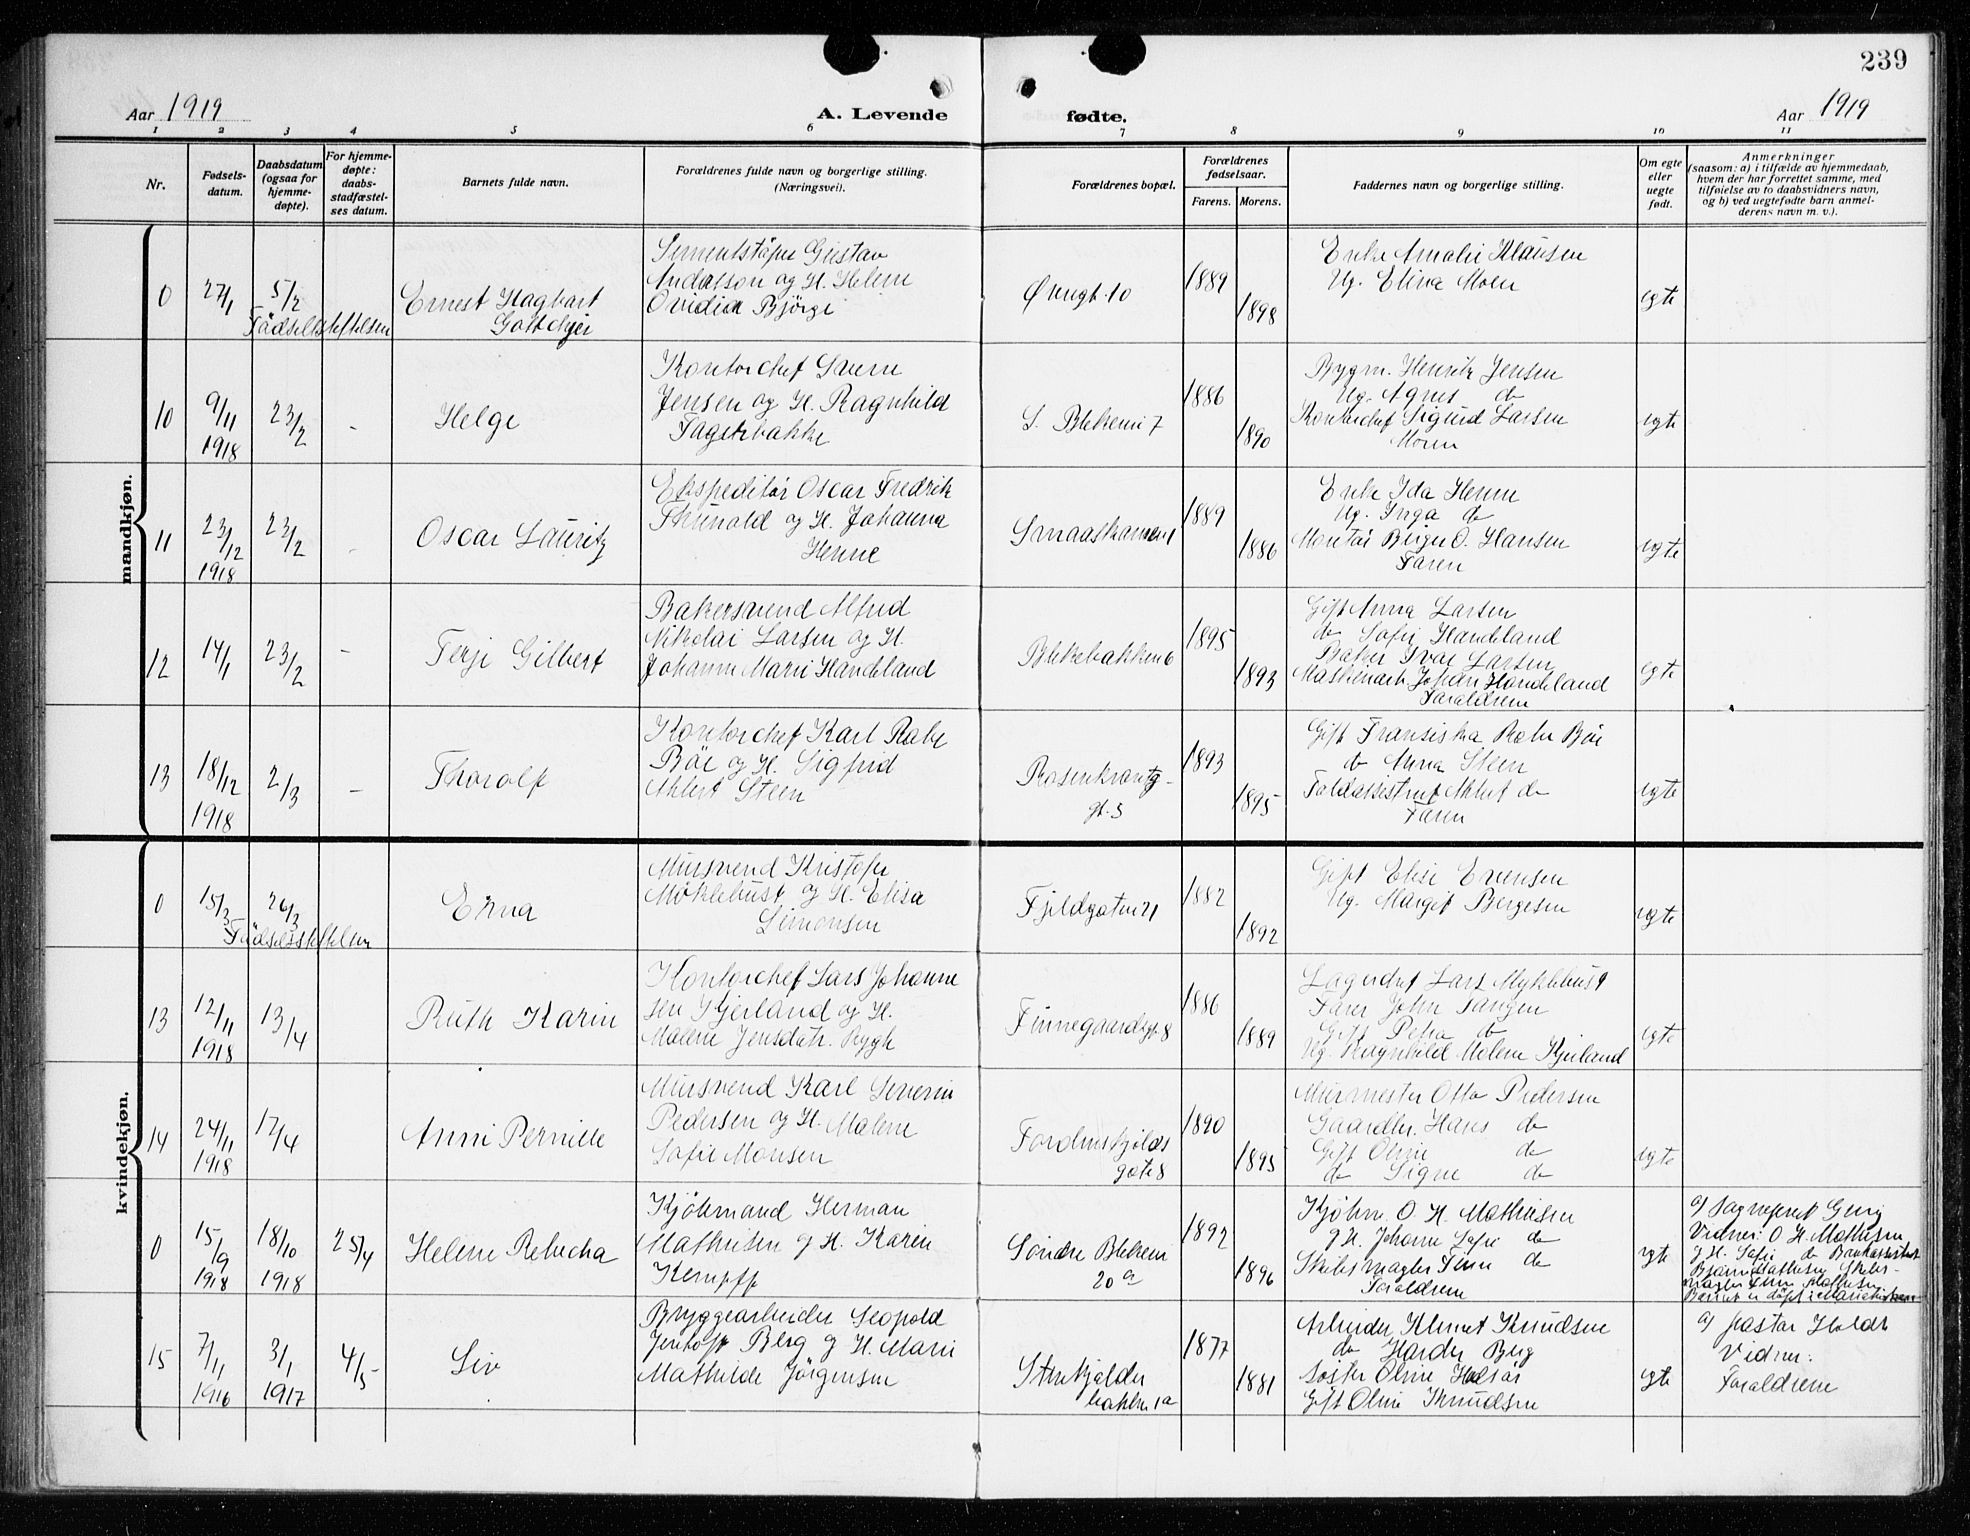 239
Aar 1919
A. Levende
fødte.
Aar 1919
1 2 3 4 5 6 7 8 9 10 11
Nr.
Fødsels-
datum.
Daabsdatum
(ogsaa for
hjemme-
døpte).
For hjemme-
døpte:
daabs-
stadfæstel-
ses datum.
Barnets fulde navn.
Forældrenes fulde navn og borgerlige stilling.
(Næringsvei).
Forældrenes bopæl.
Forældrenes
fødselsaar.
Farens. Morens.
Faddernes navn og borgerlige stilling.
Om egte
eller
uegte
født.
Anmerkninger
(saasom: a) i tilfælde av hjemmedaab,
hvem der har forrettet samme, med
tilføielse av to daabsvidners navn,
og b) ved uegtefødte barn anmel-
derens navn m. v.).
mandkjøn.
0
27/1
5/2
Fødselsstiftelsen
Ernest Hagbart
Gustav
og H. Helene
Ovidia Bjørge
10
1889
1898
Enke Amalie Klausen
Ug. Elina Moen
egte
10
9/11
1918
23/2
-
Helge
Kontorchef Sverre
Jensen og H. Ragnhild
Fagerbakke
S. Blekevei 7
1886
1890
Bygm. Henrik Jensen
Ug. Agnes do
Kontorchef Sigurd Larsen
Moren
egte
11
23/12
1918
23/2
-
Oscar Lauritz
Ekspeditør Oscar Fredrik
Thunold og H. Johanna
Henne
1889
1886
Enke Ida Henne
Ug. Inga do
Montør Birger O. Hansen
Faren
egte
12
14/1
23/2
-
Terje Gilbert
Bakersvend Alfred
Nikolai Larsen og H.
Johanne Marie Handeland
Blekebakken 6
1895
1893
Gift Anna Larsen
do Sofie Handeland
Baker Ivar Larsen
Johan Handeland
Forældrene
egte
13
18/12
1918
2/3
-
Thorolf
Kontorchef Karl Rabe
Böe og H. Sigfrid
Ahlert Steen
Rosenkrantz-
gt. 5
1893
1895
Gift Fransiska Rabe Böe
do Anna Steen
Ahlert do
Faren
egte
kvindekjøn.
0
15/3
26/3
Fødselsstiftelsen
Erna
Mursvend Kristofer
Møklebust og H. Elisa
Simonsen
Fjeldgaten 21
1882
1892
Gift Elise Evensen
Ug. Margit Børgesen
egte
13
12/11
1918
13/4
Ruth Karin
Kontorchef Lars Johanne
sen Kjerland og H.
Malene Jensdatr. Rygh
Finnegaardsgt. 8
1886
1889
Lagerchef Lars Myklebust
Fører John Tangen
Gift Petra do
Ug. Ragnhild Malene Kjerland
egte
14
24/11
1918
17/4
Anni Pernille
Mursvend Karl Severin
Pedersen og H. Malene
Sofie Monsen
Tordenskjolds
gate 8
1890
1895
Murmester Otto Pedersen
Gaardbr. Hans do
Gift Oline do
do Signe do
egte
0
15/9
1918
18/10
1918
25/4
Helene Rebecka
Kjøbmand Herman
Mathiesen og H. Karen
Kempff
Søndre Blekevei
20 a
1892
1896
Kjøbm. O. H. Mathiesen
og H. Johanne Sofie do
Skibsmægler Finn do
Forældrene
egte
a) Sogneprest
Vidner: O H. Mathiesen
og H. Sofie do
Bjarne Mathiesen Skibs-
mægler Finn Mathiesen
Barnet er døpt i Mariakirken
15
7/11
1916
3/1
1917
4/5
-
Siv
Bryggearbeider Leopold
Jentoft Berg og H. Marie
Mathilde Jörgensen
Stenkjelder
bakken 1a
1877
1881
Arbeider Klemet Knudsen
do Harder Berg
Søster Oline
Gift Oline Knudsen
egte
a) Pastor Holdt
Vidner:
Forældrene